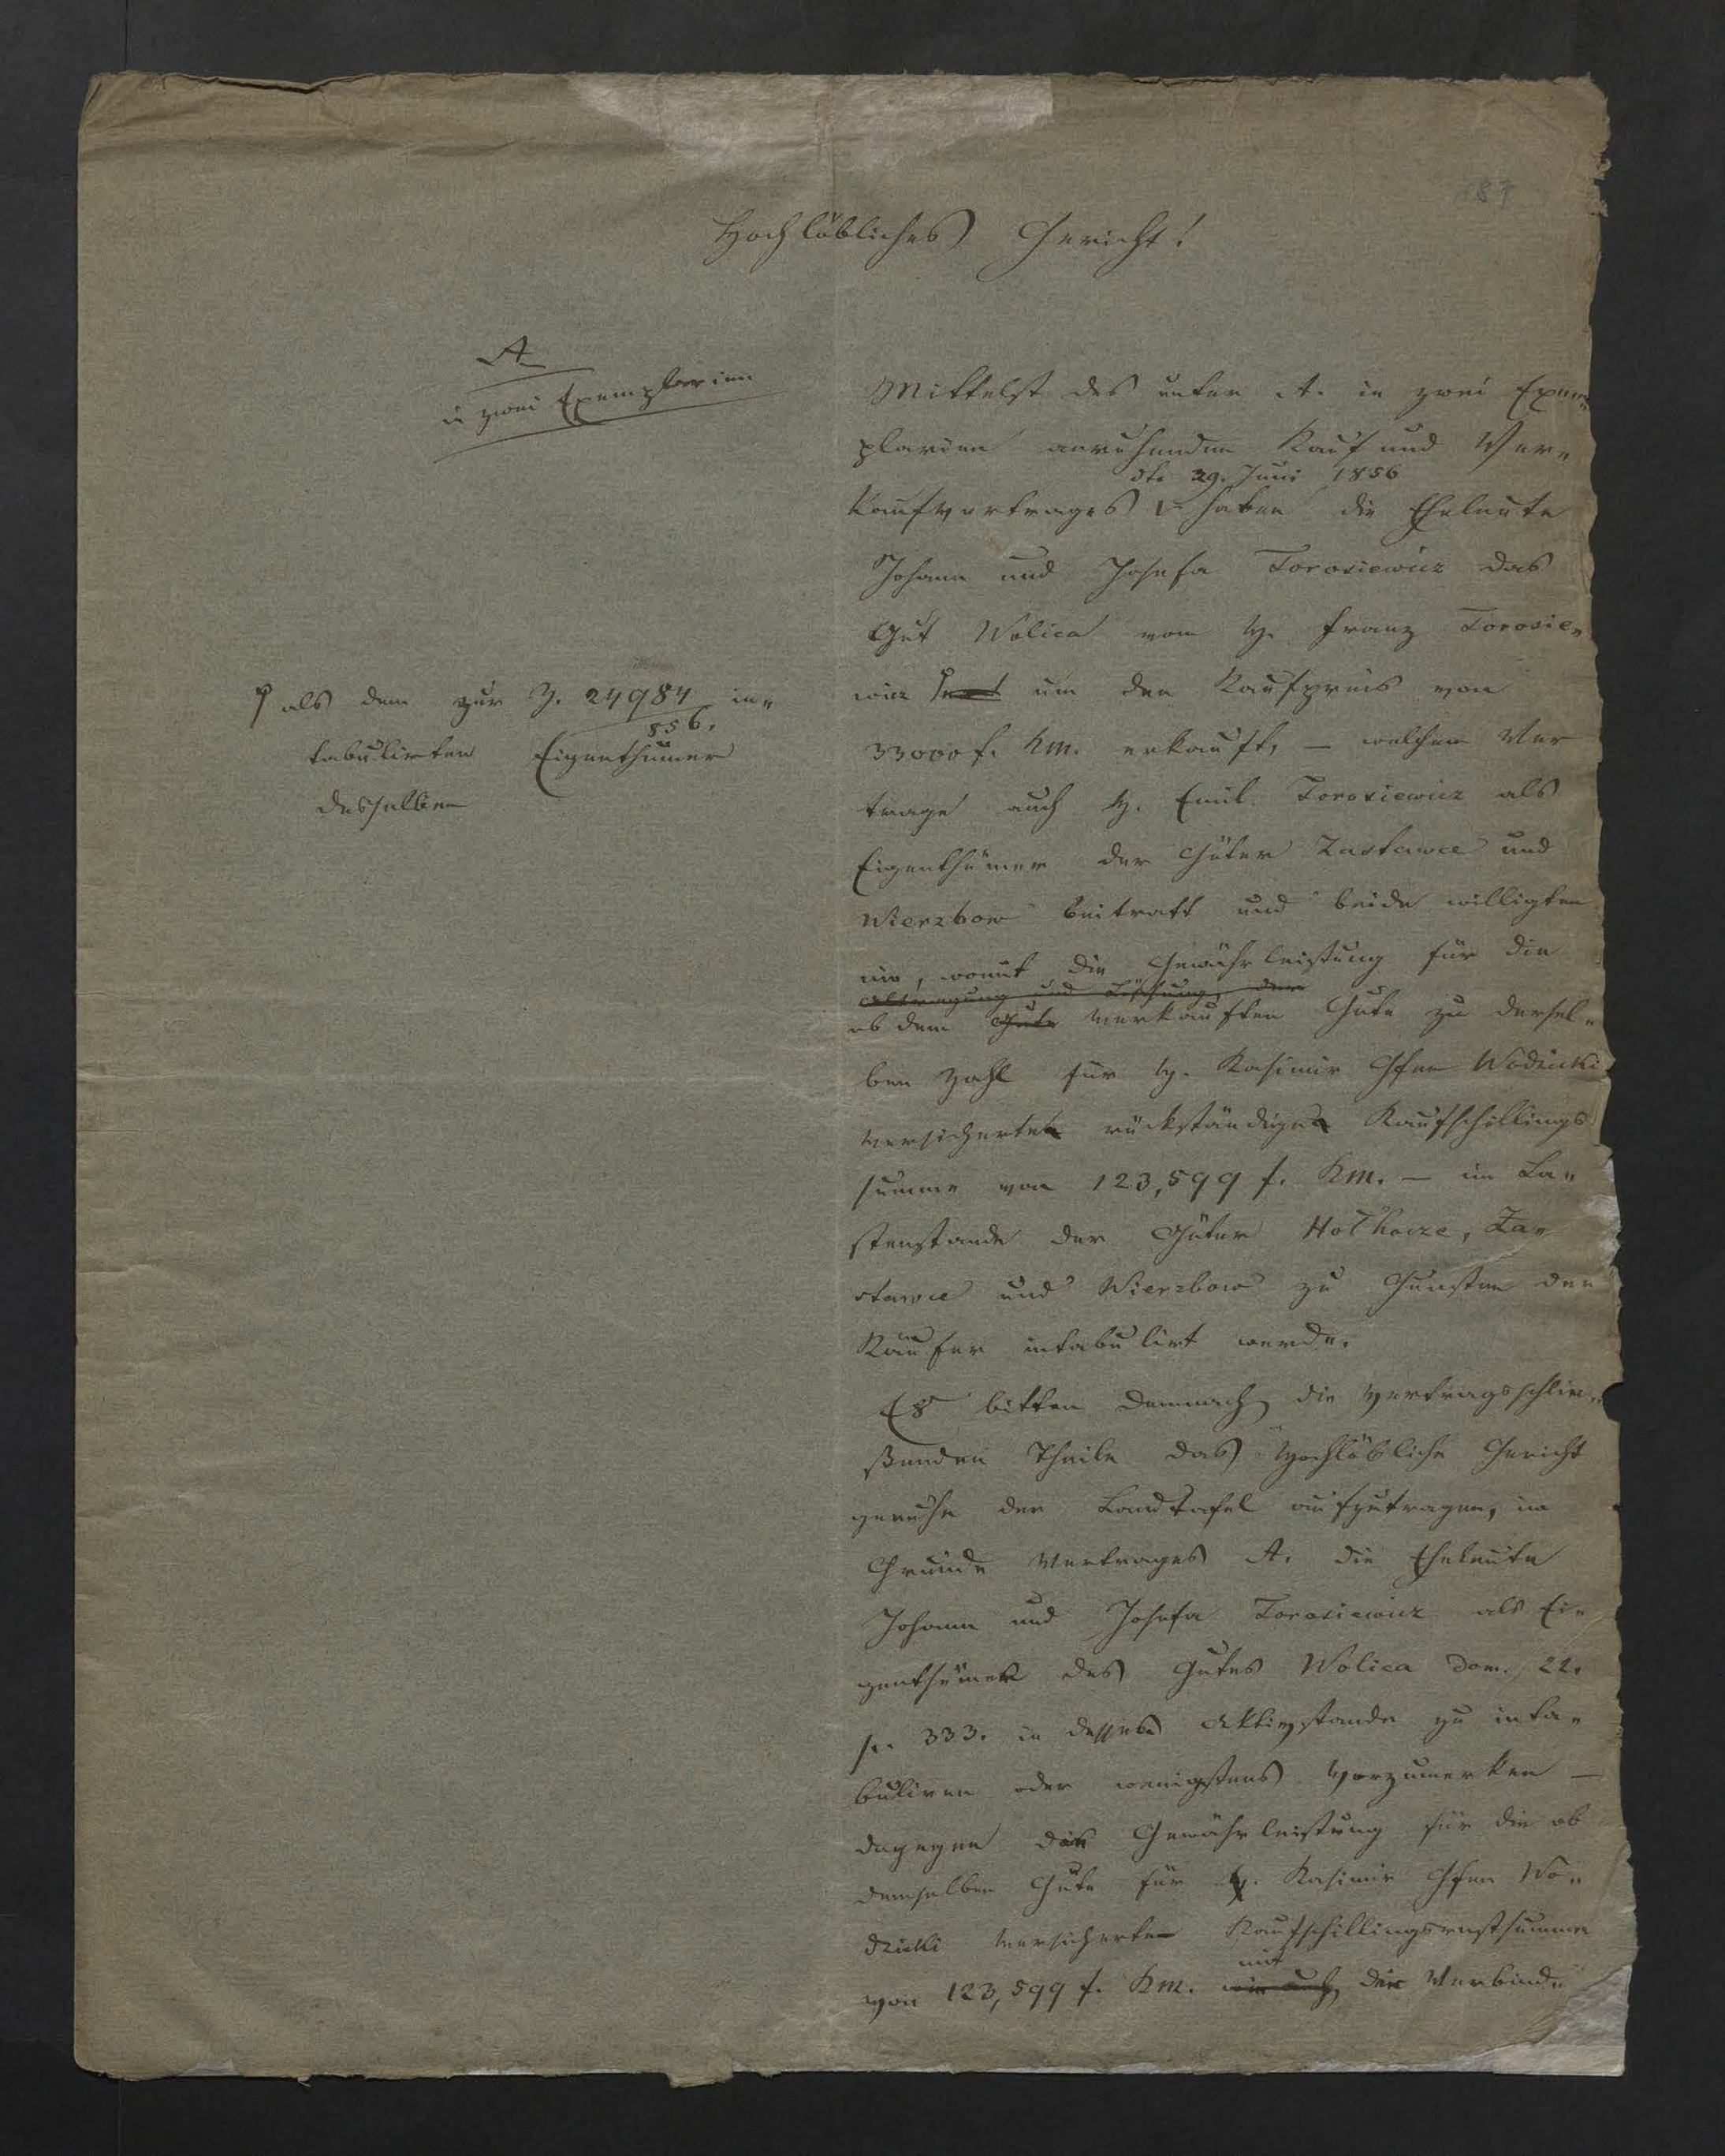 187
Hochlöbliches Gericht!
A.
in zwei Exemplarien
Mittelst des unter A. in zwei Exem„
plarien anruhenden Kauf und Ver„
dto 29. Juni 1856
kaufvertrages haben die Eheleute
Johann und Josefa Torosiewicz das
Gut Wolica vom H. Franz Torosie„
wicz um den Kaufpreis von
als dem zur Z. 24984/856. in„
tabulirten Eigenthümer
desselben
33000 f. Km. erkauft, – welchem Ver
trage auch H. Emil Torosiewicz als
Eigenthümer der Güter Zastawce und
Wierzbow beitratt und beide willigten
ein, womit die Gewährleistung für die
Abtragung und Löschung der
ob dem Gute verkauften Gute zu dersel„
ben Zahl für H. Kasimir Gfen Wodzicki
versicherte rückständige Kaufschillings
summe von 123,599 f. Km. – im La„
stenstande der Güter Holhocze, Za„
stawce und Wierzbow zu Gunsten der
Käufer intabulirt werde.
Es bitten demnach die vertragsschlie„
ßenden Theile das Hochlöbliche Gericht
geruhe der Landtafel aufzutragen, im
Grunde Vertrages A. die Eheleute
Johann und Josefa Torosiewicz als Ei„
genthümer des Gutes Wolica dom. 22.
p. 333. in dessen Aktivstande zu inta„
buliren oder wenigstens vorzumerken –
dagegen die Gewährleistung für die ob
demselben Gute für H. Kasimir Gfen Wo„
dzicki versicherte Kaufschillingsrestsumme
mit
von 123,599 f. Km. wie auch der Verbind